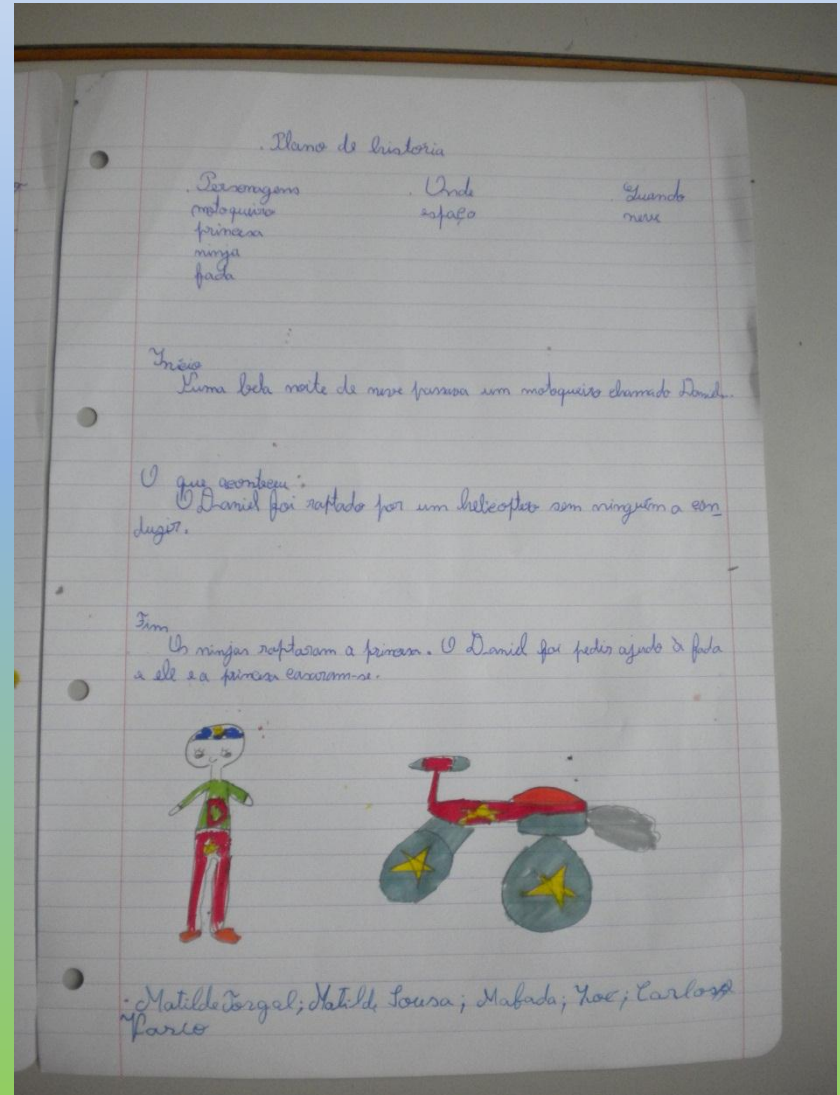 . Plano de historia
. Personagens . Onde . Quando
motoqueiro espaço neve
princesa
ninja
fada
Início
Numa bela noite de neve passava um motoqueiro chamado Daniel...
O que aconteceu:
O Daniel foi raptado por um helicoptero sem ninguém a con
duzir.
Fim
Os ninjas raptaram a princesa. O Daniel foi pedir ajuda à fada
e ele e a princesa casaram-se.
D
. Matilde Torgal; Matilde Sousa; Mafada; Zoe; Carlos
Vasco